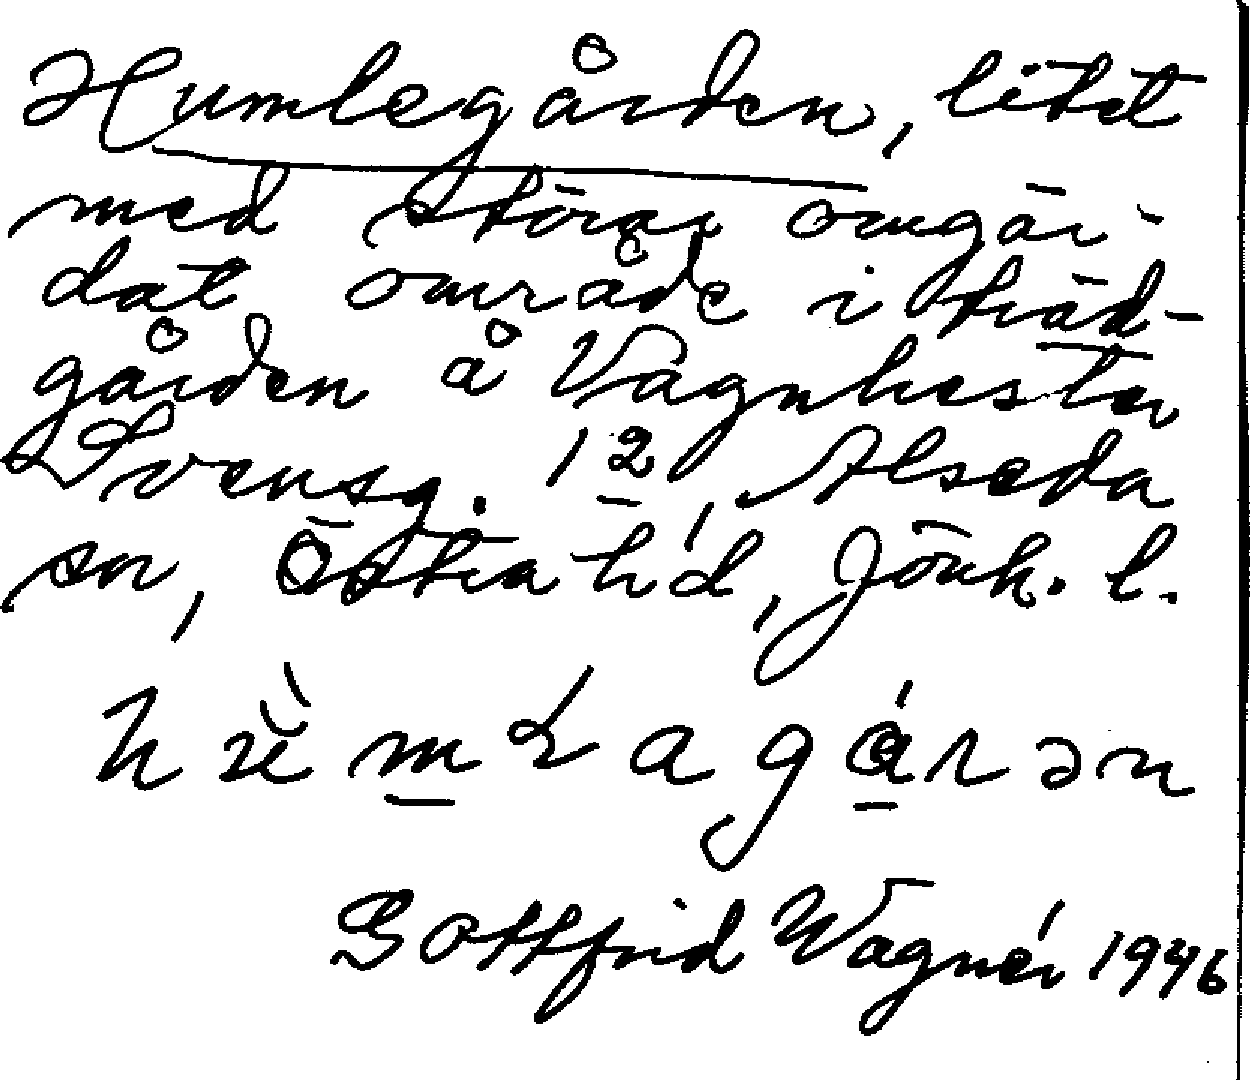 Humlegården, litet
med störar omgär-
dat område i träd-
gården å Vagnhester
Svensg. 12, Alseda
sn, Östra hd, Jönk. l.
Gottfrid Wagnér 1946